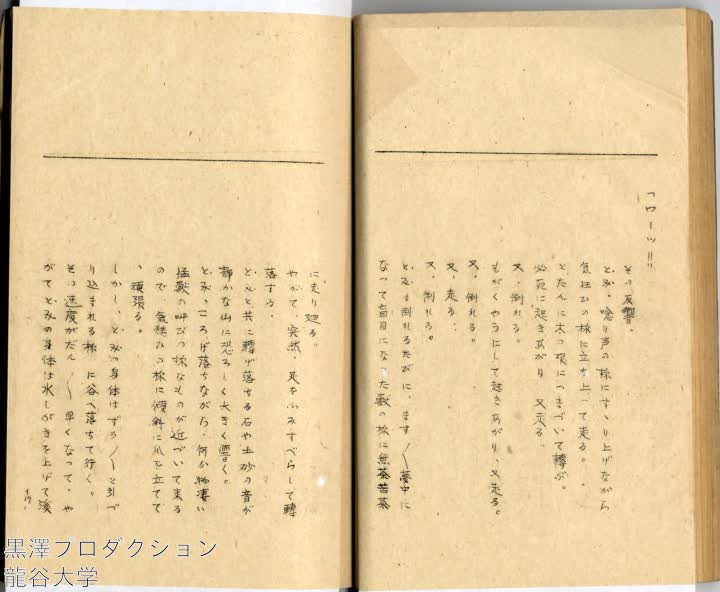 「ウーッ＝＝」
その反響。
とみ、唸り声の様にすゝり上げながら
気狂ひの様に立ち上って走る。
とたんに木の根につまづいて轉ぶ。
必死に起きあがり　又走る、
又、倒れる。
もがくやうにして起きあがり、又走る。
又、倒れる。
又、走る：
又、倒れる。
とみは倒れるたびに、ます〳〵夢中に
なって盲目になった獣の様に無茶苦茶
に走り廻る。
やがて、突然、足をふみすべらして轉
落する。
どんと共に轉げ落ちる石や土砂の音が
静かな山に恐ろしく大きく響く。
とみ、ころげ落ちながら、何か物凄い
猛獣の叫びの様なものが近づいて来る
ので、気狂ひの様に傾斜に爪を立てて
、頑張る。
しかし、とみの身体はずる〳〵と引づ
り込まれる様に谷へ落ちて行く。
その速度がだん〳〵早くなって、や
がてとみの身体は水しぶきを上げて溪
黒澤プロダクション
龍谷大学